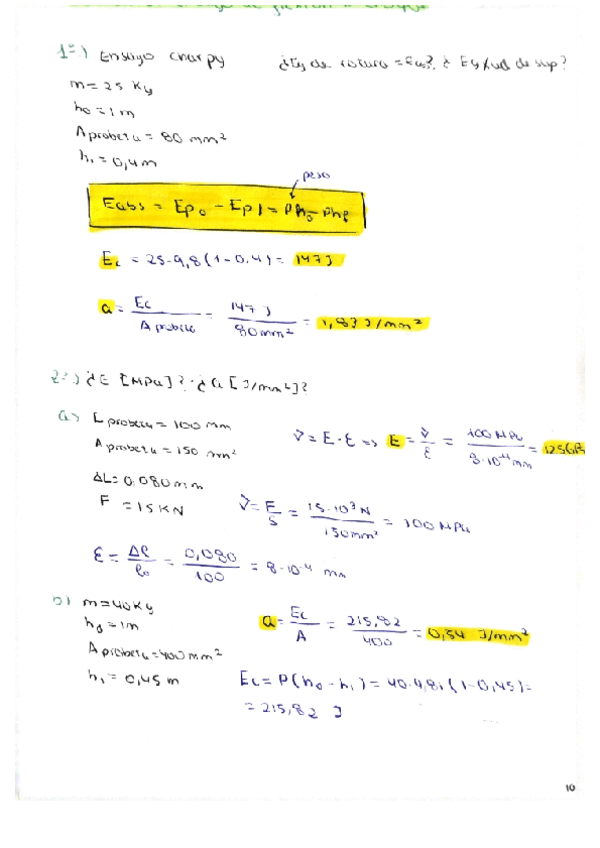 1º) Ensayo charpy ¿Eg de rotura = Eabs? ¿ Eg/ud de sup?
m = 25 Kg
h0 = 1 m
A probeta = 80 mm²
h1 = 0,4 m
peso
Eabs = Ep0 - Ep1 = Ph0 - Phf
Ec = 25·9,8 (1-0.4) = 147 J
a = Ec / A probeta = 147 J / 80 mm² = 1,83 J/mm²
2º) ¿E [MPa]? · ¿a [J/mm²]?
a) L probeta = 100 mm
A probeta = 150 mm²
ΔL = 0.080 mm
F = 15 KN
∇ = E·ε => E = ∇/ε = 100 MPa / 8·10⁻⁴ mm = 125 GPa
∇ = F/S = 15·10³ N / 150 mm² = 100 MPa
ε = Δl/l0 = 0,080/100 = 8·10⁻⁴ mm
b) m = 40 Kg
h0 = 1m
A probeta = 400 mm²
h1 = 0,45 m
a = Ec/A = 215,82/400 = 0,54 J/mm²
Ec = P(h0 - h1) = 40·9,81 (1-0,45) =
= 215,82 J
10